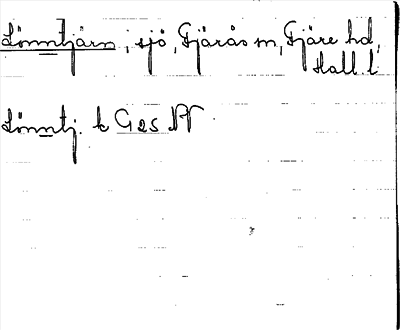 Lönntjärn, sjö, Fjärås sn, Fjäre hd,
Hall. l.
Lönntj. k G 25 NV